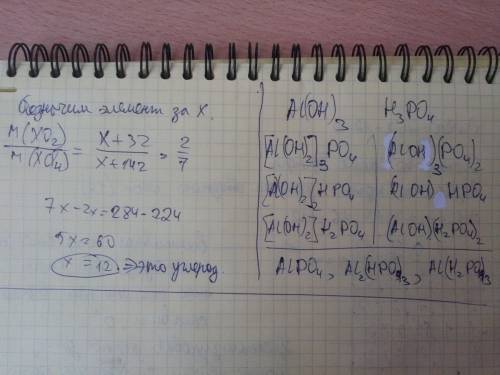 бозначим элемент за X.
M(XO₂)/M(XO₄) = X+32/X+142 = 2/7
7x-2x=284-224
5x=60
x=12 ⇒ это углерод.
Al(OH)₃ H₃PO₄
[Al(OH)₂]₃PO₄ (AlOH)₃(PO₄)₂
[Al(OH)₂]₂HPO₄ AlOH HPO₄
[Al(OH)₂]H₂PO₄ (AlOH)(H₂PO₄)₂
AlPO₄, Al₂(HPO₄)₃, Al(H₂PO₄)₃